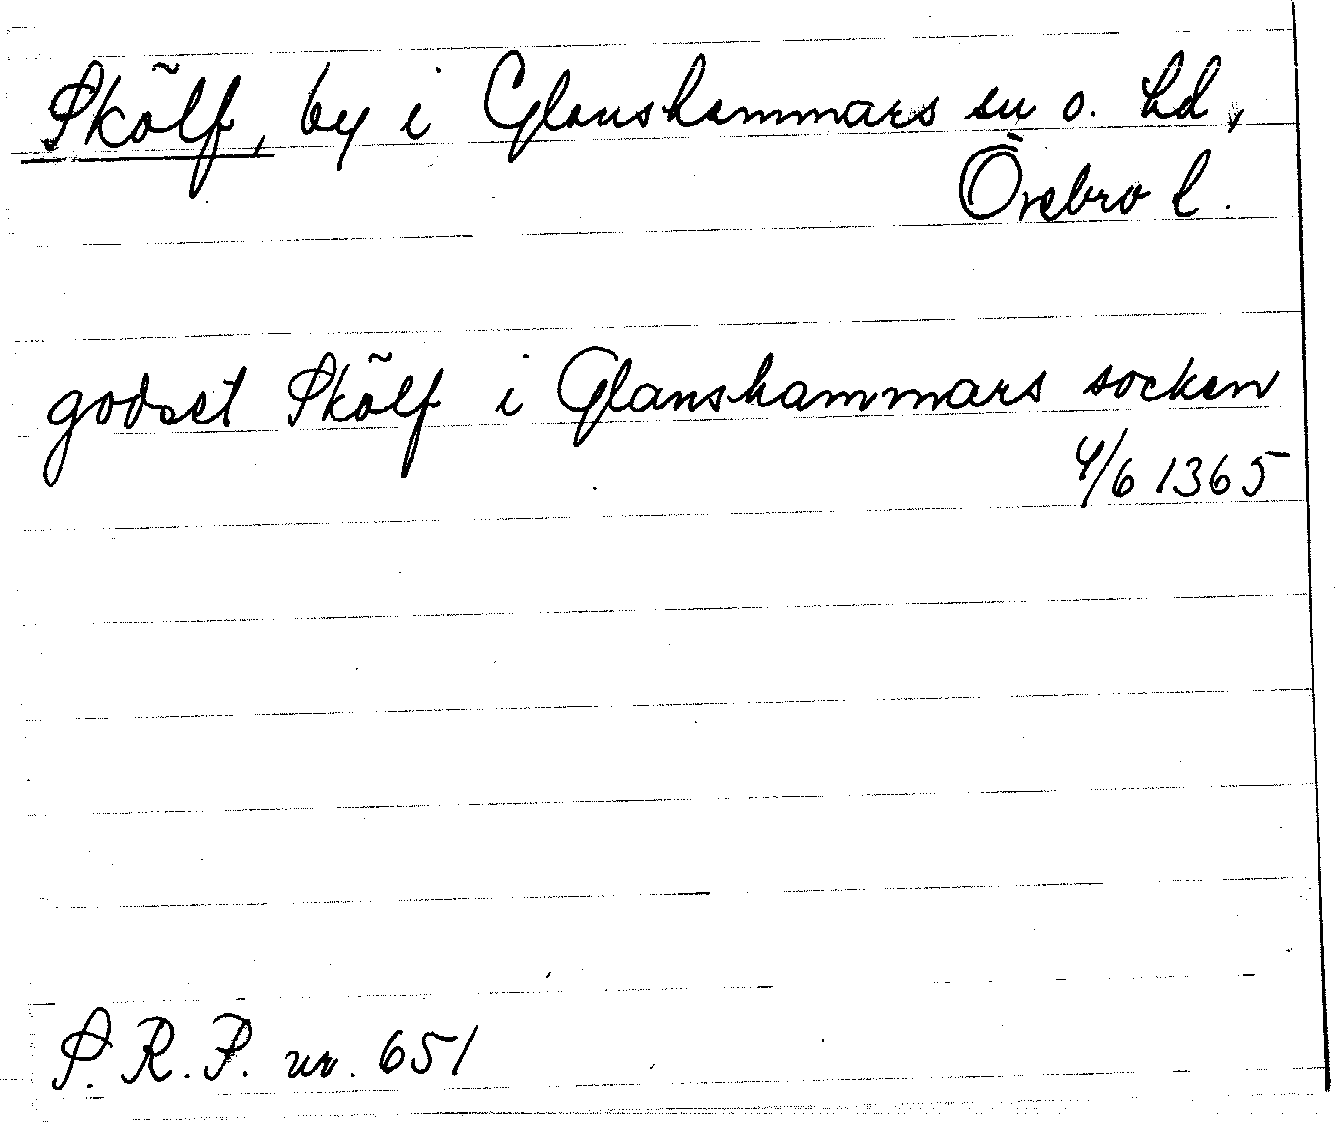 Skölf, by i Glanshammars sn o. hd,
Örebro l.
godset Skölf i Glanshammars socken
4/6 1365
S. R. P. nr. 651